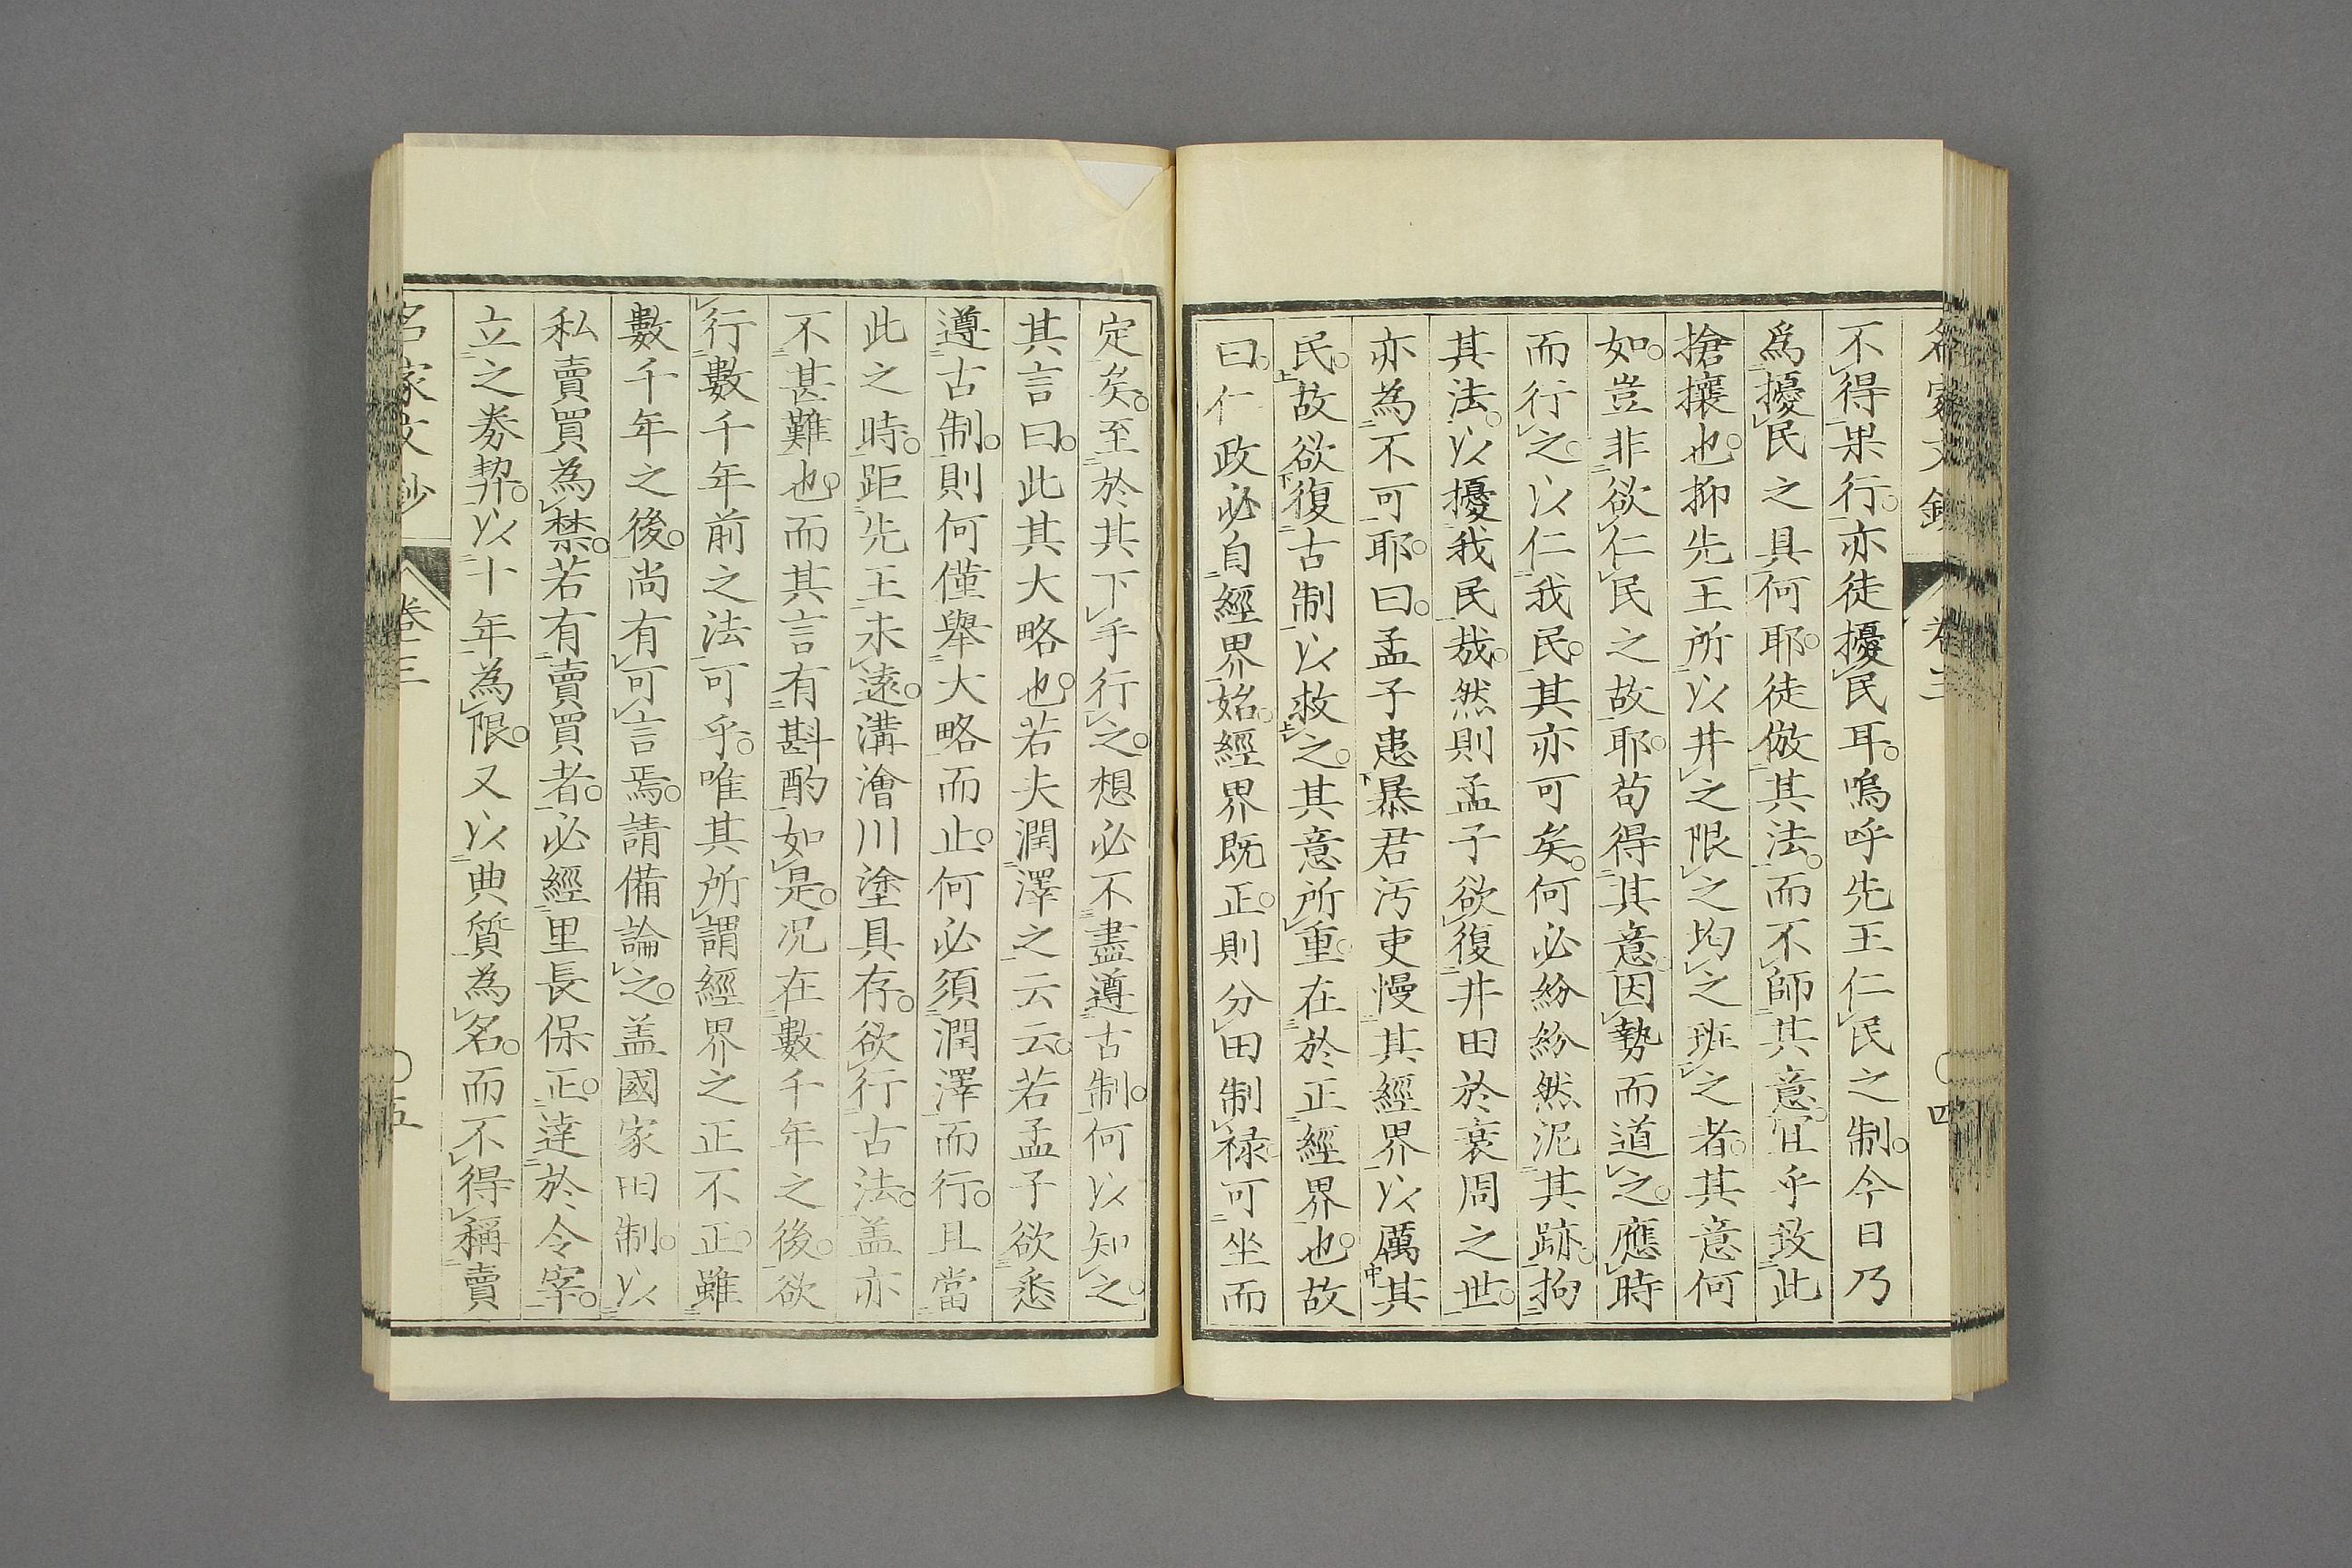 名家文鈔 卷三 〇四
不得果行。亦徒擾民耳。嗚呼先王仁民之制。今日乃
爲擾民之具何耶。徒倣其法。而不師其意。宜乎致此
搶攘也。抑先王所以井之限之均之班之者。其意何
如。豈非欲仁民之故耶。苟得其意。因勢而道之。應時
而行之。以仁我民。其亦可矣。何必紛紛然泥其跡。拘
其法。以擾我民哉。然則孟子欲復井田於衰周之世。
亦為不可耶。曰。孟子患暴君汚吏慢其經界以厲其
民。故欲復古制以救之。其意所重。在於正經界也。故
曰。仁政必自經界始。經界既正。則分田制禄。可坐而
定矣。至於其下手行之。想必不盡遵古制。何以知之。
其言曰。此其大略也。若夫潤澤之云云。若孟子欲悉
遵古制。則何僅舉大略而止。何必須潤澤而行。且當
此之時。距先王未遠。溝澮川塗具存。欲行古法。盖亦
不甚難也。而其言有斟酌如是。况在數千年之後。欲
行數千年前之法可乎。唯其所謂經界之正不正。雖
數千年之後。尚有可言焉。請備論之。盖國家田制。以
私賣買為禁。若有賣買者。必經里長保正。達於令宰。
立之券契。以十年為限。又以典質為名。而不得稱賣
名家文鈔 卷三 〇五